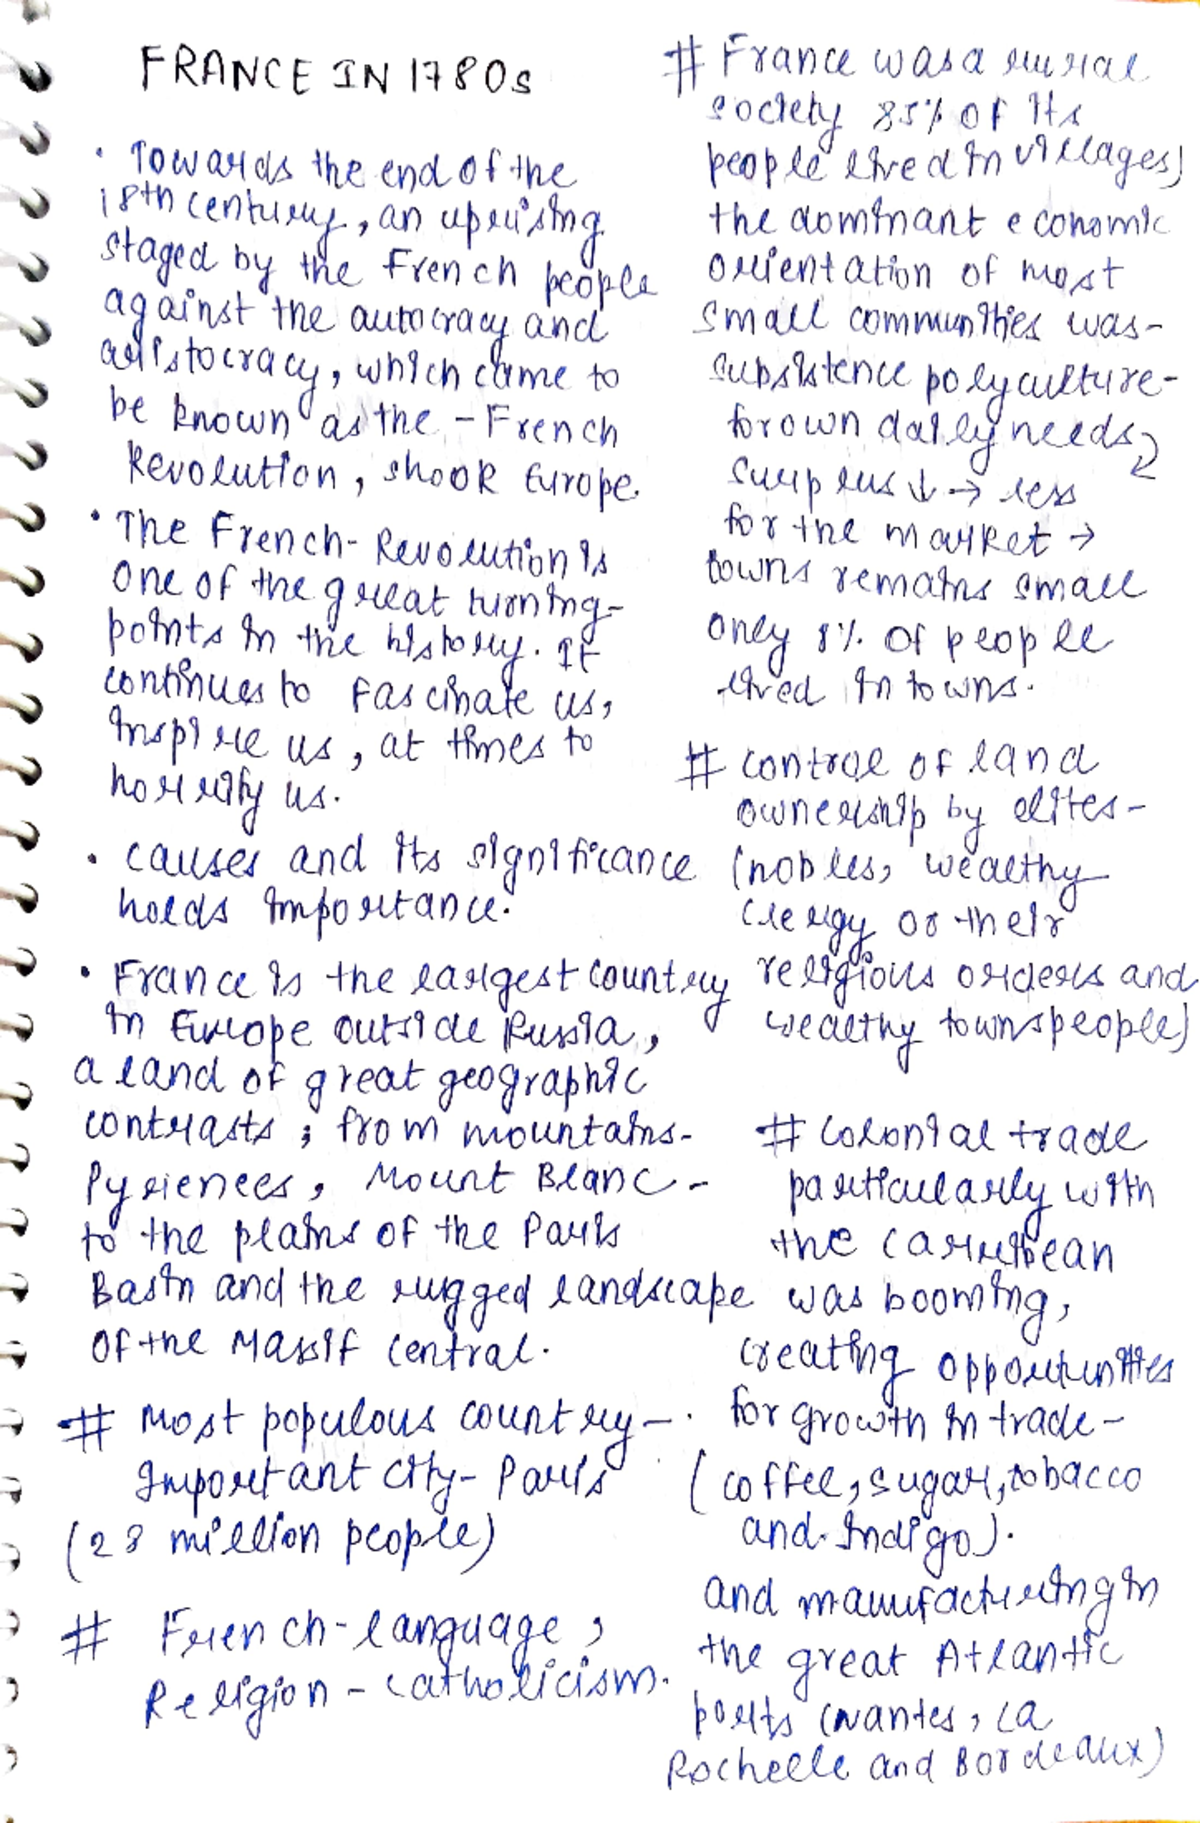 FRANCE IN 1780s
• Towards the end of the
18th century, an uprising
staged by the French people
against the autocracy and
aristocracy, which came to
be known as the - French
Revolution, shook Europe.
• The French-Revolution is
one of the great turning-
points in the history. It
continues to fascinate us,
inspire us, at times to
horrify us.
• causes and its significance
holds importance.
• France is the largest country
in Europe outside Russia,
a land of great geographic
contrasts; from mountains-
Pyrienees, Mount Blanc -
to the plains of the Paris
Basin and the rugged landscape
of the Massif Central.
# Most populous country -
Important city - Paris
(28 million people)
# French-language,
Religion - catholicism.
# France was a rural
society 85% of its
people lived in villages)
the dominant economic
orientation of most
small communities was-
subsistence polyculture-
for own daily needs
surplus ↓ → less
for the market →
towns remains small
only 8% of people
lived in towns.
# control of land
ownership by elites-
(nobles, wealthy
clergy or their
religious orders and
wealthy townspeople)
# Colonial trade
particularly with
the Carribean
was booming,
creating opportunities
for growth in trade -
(coffee, sugar, tobacco
and Indigo).
and manufacturing in
the great Atlantic
ports (Nantes, La
Rochelle and Bordeaux)